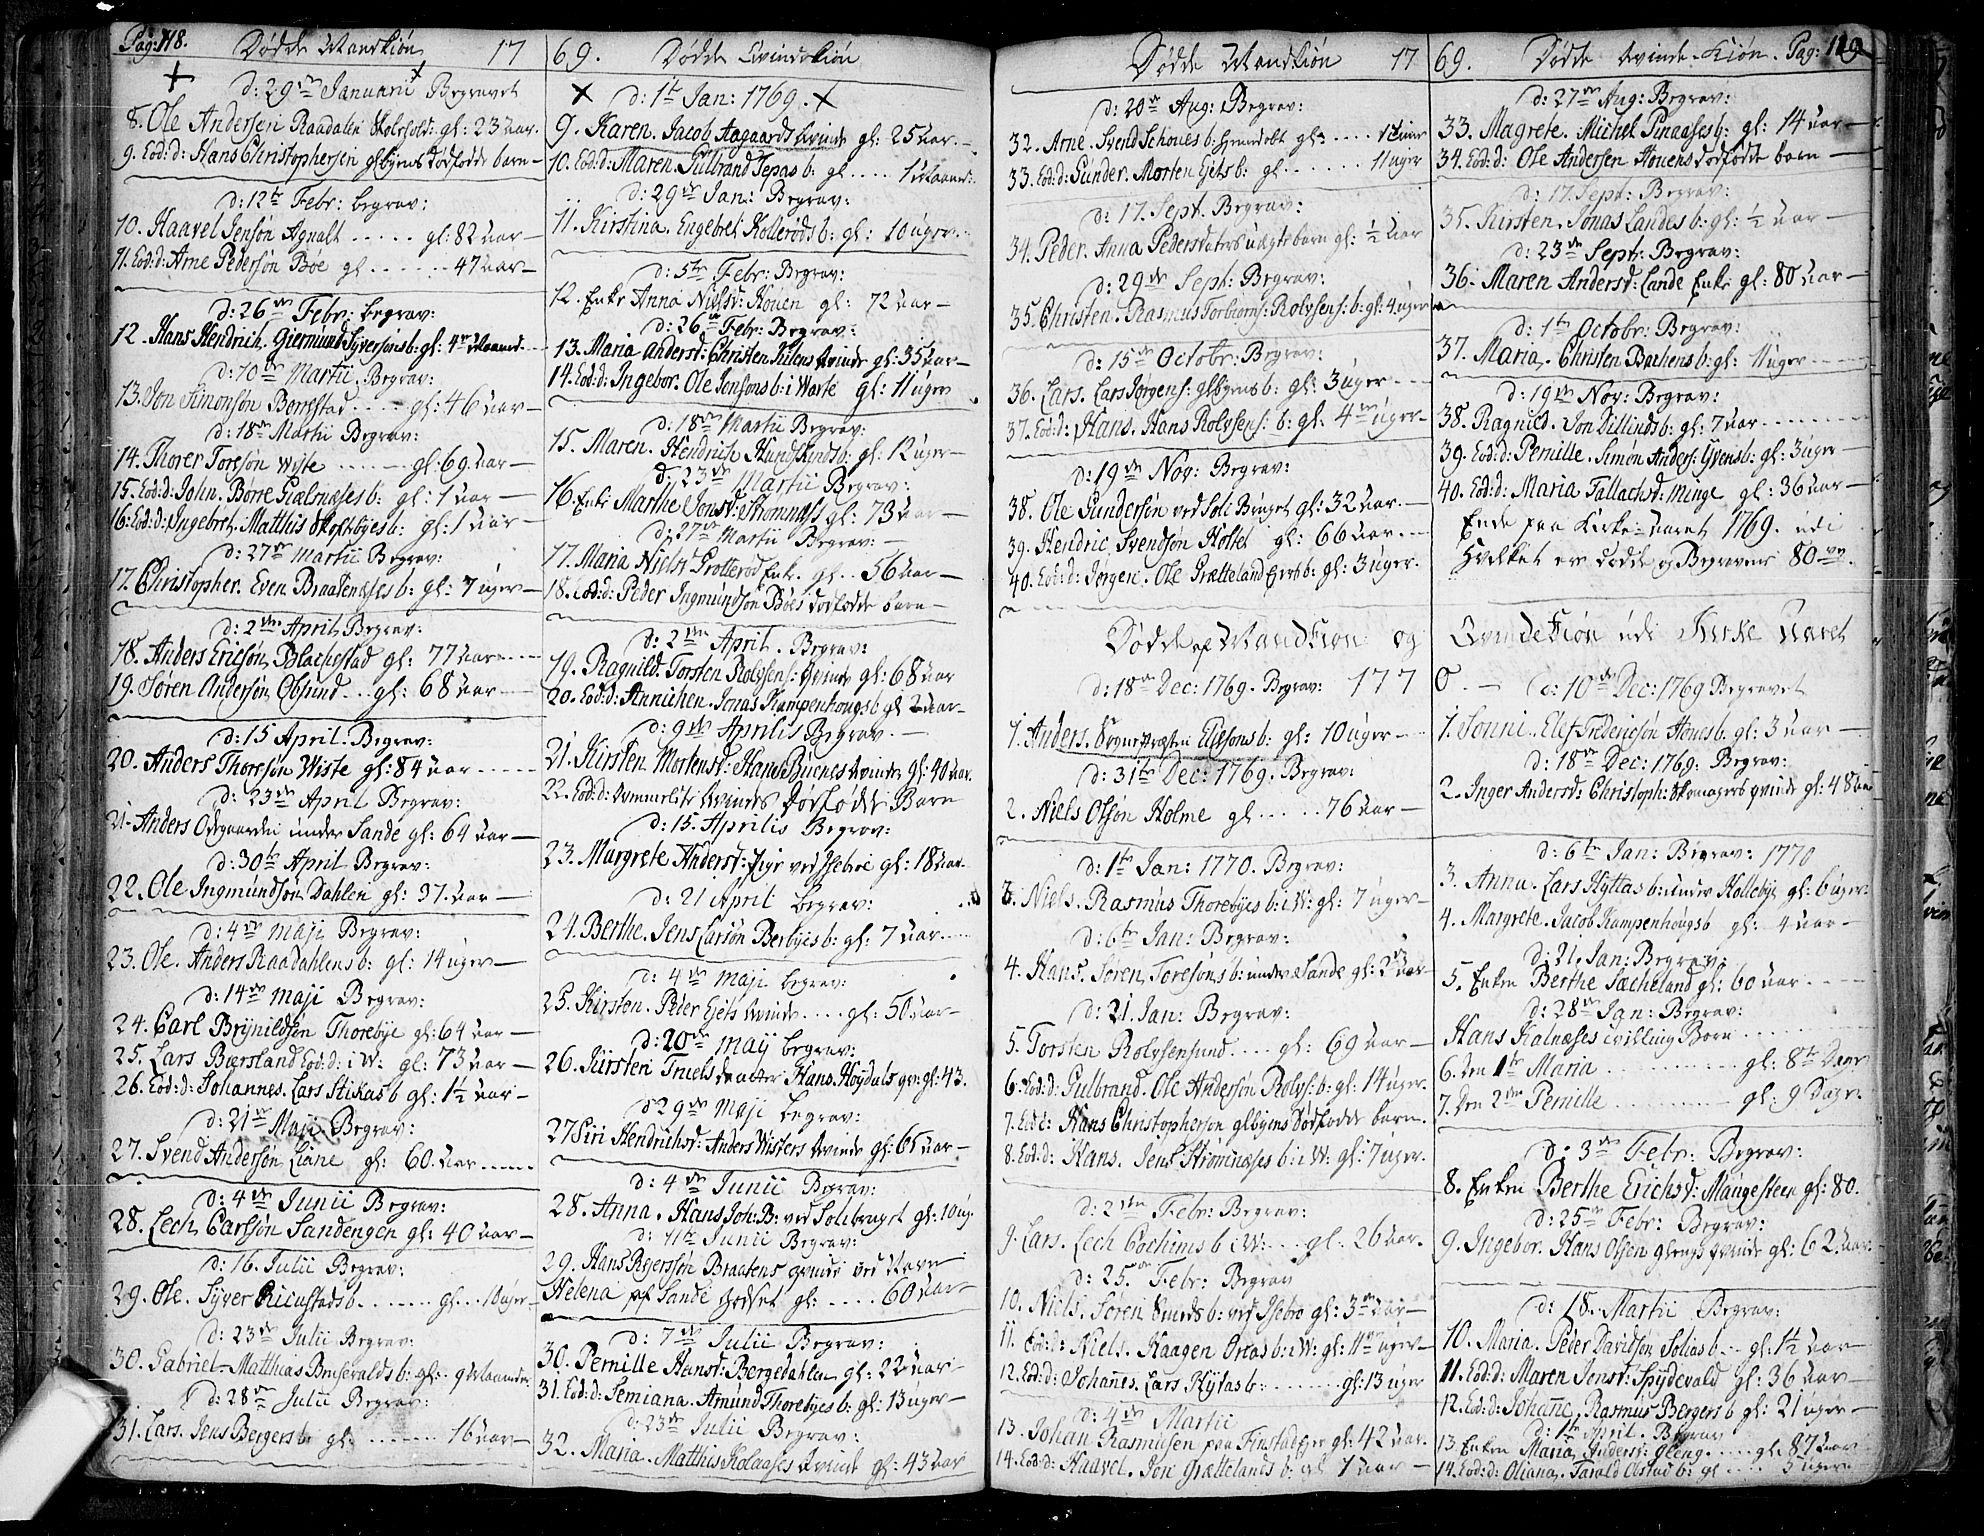 Pag: 118. Dødde Mandkiøn 17
d: 29de Januarii Begravet
8. Ole Andersen Raadalen Skoleholds: gl: 23 aar.
9. Eod: d: Hans Christophersen glbyens dødfødde barn —
d: 12te Febr: begrav:
10. Haavel Jensøn Agnalt ..... gl: 82 aar —
11. Eod: d: Arne Pedersøn Bøe gl ...... 47 aar —
d: 26de Febr: begrav:
12. Hans Hendrich. Giermund Syversøns b: gl: 4re Maaned
d: 10de Martii Begrav:
13. Jon Simonsøn Borrestad .... gl: 46 aar —
d: 18de Martii Begrav:
14. Thorer Toresøn Wiste ..... gl: 69 aar —
15. Eod: d: John. Børre Gralnæses b: gl: 1 aar —
16. Eod: d: Ingebret. Matthis Skoltbyes b: gl: 1 aar —
d: 27de Martii Begrav:
17. Christopher. Even Braatenæses b: gl: 7 uger —
d: 2den April Begrav:
18. Anders Ericsøn Blachestad gl: 77 aar
19. Søren Andersøn Obsund .. gl: 68 aar
d: 15 April. Begrav:
20. Anders Thoresøn Wiste gl: 84 aar
d: 23de April Begrav:
21. Anders Odegaarden under Sande gl: 64 aar —
d: 30te April Begrav:
22. Ole Ingmundsøn Dahlen gl: 37. aar —
d: 4de Maji Begrav:
23. Ole. Anders Raadahlens b: gl: 14 uger —
d: 14de Maji Begrav:
24. Carl Brynildsøn Thorebye gl: 64 aar —
25. Lars Biersland Eod: d: i W: gl: 73 aar —
26. Eod: d: Johannes. Lars Stikas b gl: 1½ aar —
d: 21de Maji Begrav:
27. Svend Andersøn Liane gl: 60. aar
d: 4de Junii Begrav:
28. Lech Carlsøn Sandengen gl: 40 aar —
d: 16. Julii Begrav:
29. Ole. Syver Riiustads b ...... gl ... 10 uger —
d: 23de Julii Begrav:
30. Gabriel. Matthias Brusevalds b: gl: 9 Maaneder
d: 28de Julii Begrav:
31. Lars. Jens Bergers b: gl: ...... 16 aar —
69. Dødde Qvindekiøn
d: 1te Jan: 1769.
9. Karen. Jacob Aagaards Qvinde gl: 25 aar. —
10. Eod: d: Maren. Gulbrand Tepas b: gl .... 1 Maaned:
d: 29de Jan: Begrav:
11. Kirstina. Engebret Kollerøds b: gl: 10 uger
d: 5te Febr: Begrav:
12. Enke Anna Nielsd: Houen gl: 72 aar —
d: 26de Febr: Begrav:
13. Maria Andersd: Christen Kulens Qvinde gl: 35 aar —
14. Eod: d: Ingebor. Ole Jonsøns b: i Warte gl: 11 uger
d: 18de Martii Begrav:
15. Maren. Hendrich Hundskinds b: gl: 12 uger —
d: 23de Martii Begrav:
16. Enke Marthe Jonsd: Strømnæss gl: 73 aar —
d: 27de Martii Begrav: —
17. Maria Nielsd Grollerød Enk. gl .. 56 aar —
18. Eod: d: Peder Ingmundsøn Bøes dødfødde barn —
d: 2den April. Begrav:
19. Ragnild. Torsten Rolvsens: Qvinde gl: 68 aar
20. Eod: d: Annichen. Jonas Kampenhougs b gl 2 aar —
d: 9de Aprilis Begrav. —
21. Kirsten Mortensd: Hans Buenes Qvinde gl: 40 aar.
22. Eod: d: Qvindes Dødfødde Barn
d: 15. Aprilis Begrav:
23. Margrete Andersd: Pige ved Isebroe gl: 18 aar
d: 21 April begrav:
24. Berthe. Jens Larsøn Berbyes b: gl: 7 aar
d: 4de Maji begrav:
25. Kirsten. Peder Ejets Qvinde .... gl: 50 aar —
d: 20de Maij begrav:
26. Kirsten Truels daatter Hans Høydals qv: gl: 43.
d 29de Maji begrav:
27 Siri Hendrichsd: Anders Wisters Qvinde gl: 65 aar —
d: 4de Junii Begrav:
28. Anna. Hans Joh: B: ved Solibruget gl: 10 ug.
d: 11te Junii Begrav:
29. Hans Rejersøn Braatens qvinde ved Navn
Helena paa Sande Godset gl: ..... 60 aar —
d: 7de Julii Begrav:
30. Pernille Hansd: Bergedahlen gl: 22 aar
31. Eod: d: Semiana. Amund Thorebyes b; gl: 13 uger —
d: 23de Julii Begrav:
32. Maria. Matthis Kolaases Qvinde gl: 43 aar
Dødde Mandkiøn 17
d: 20de Aug: Begrav:
32. Arne. Svend Schoues b: gl: ....
33. Eod: d: Gunder. Morten Ejets b: gl ...... 11 uger
d: 17. Sept. Begrav:
34. Peder. Anna Pedersdatters uægte barn gl: ½ aar
d: 29de Sept: Begrav:
35. Christen. Rasmus Torbiorns: Rolvsens: b: gl: 4 uger
d: 15de Octobr: Begrav:
36. Lars. Lars Jorgens: glbyens b: gl: 3 uger
37. Eod: d: Hans. Hans Rolvsens: b: gl: 4re uger —
d: 19de Nov: Begrav:
38. Ole Gundersøn ved Soli Bruget gl: 32 aar.
39. Hendric Svendsøn Holtet gl: 66 aar.
40. Eod: d: Jørgen. Ole Grætteland Eers b: gl: 3 uger.
Dødde af Mandkiøn og
d: 18de Dec: 1769. Begrav: 177
1. Anders. Sogne Præsten Eliesons b: gl: 10 uger
d: 31te Dec: 1769. Begrav:
2. Niels Olsøn Holme gl ...... 76 aar —
d: 1te Jan: 1770. Begrav:
3. Niels. Rasmus Thorebyes b: i W: gl: 7 uger —
d: 6te Jan: Begrav:
4. Hans. Søren Toresøns b: under Sande gl: 2 aar —
d: 21 Jan: Begrav:
5. Torsten Rolvsensund .... gl: 69 aar —
6. Eod: d: Gulbrand. Ole Andersøn Rolvs: b: gl: 14 uger.
7. Eod: Hans Christopherson glbyens Dødfødde barn.
8. Eod: d: Hans. Jens Strømnæses b: i W: gl: 7 uger.
d: 2den Febr: Begrav:
9. Lars. Lech Cochims b i W: .... gl. 26 aar.
d: 25de Febr: Begrav
10. Niels. Søren Sunds b: ved Isebro gl: 3de aar —
11. Eod: d: Niels. Haagen Orras b: i W: gl: 11 uger —
12. Eod: d: Johanes. Lars Hytas b: ...... gl: 13 uger
d: 4de Martii
13. Johan Rasmusen paa Finstad Eje gl: 42 aar.
14. Eod: d: Haavel. Jon Grættelands b: gl 1 aar —
69. Dødde Qvinde-Kiøn. Pag: 119
d: 27de Aug: Begrav:
33. Magrete. Michel Pinaases b: gl: 14 aar —
34. Eod: d: Ole Andersen Houens dødfødde barn —
d: 17. Sept: Begrav:
35. Kirsten. Jonas Landes b: gl: ½ aar —
d: 23de Sept: Begrav:
36. Maren Andersd: Lande Enke gl: 80 aar —
d: 1te Octobr: Begrav:
37. Maria. Christen Bachens b: gl: 11 uger
d: 19de Nov: Begrav:
38. Ragnild. Jon Dillinds b: gl: 7 aar
39. Eod: d: Pernille. Simon Anders: Gyvens b: gl: 3 uger —
40. Eod: d: Maria Tallachsd: Minge gl: 36 aar —
Ende paa Kirke-aaret 1769. udi
Hvilket er dødde og Begravene 80.
Qvindekiøn udi Kirke Aaret
0. — d: 10de Dec: 1769 Begravet
1. Jonni. Elef Fredericsøn Houes b: gl: 3 aar —
d: 18de Dec: 1769. Begrav:
2. Inger Andersd: Christoph: Skomagers qvinde gl: 48 aar
d: 6te Jan: Begrav: 1770
3. Anna. Lars Hyttas b: under Hollebye gl: 6 uger.
4. Margrete. Jacob Kampenhougs b gl: 4 aar —
d: 21. Jan: Begrav:
5. Enken Berthe Sæcheland gl: 60 aar
d: 28de Jan: Begrav:
Hans Kalnæses tvilling Børn
6. Den 1te Maria ............ gl: 8te Dage
7. Den 2den Pernille .......... gl: 9 Dage.
d: 3de Febr: Begrav:
8. Enken Berthe Erichsd: Maugesteen gl: 80.
d: 25de Febr: Begrav:
9. Ingebor. Hans Olsen Glengs Qvinde gl: 62 aar.
d: 18. Martii Begrav:
10. Maria. Peder Davidsøn Solias b .. gl: 1½ aar —
11. Eod: d: Maren Jensd: Spydevald gl: 36 aar —
12. Eod: d: Johane, Rasmus Bergers b gl: 21 uger —
d: 1te April. Begrav
13. Enken Maria Andersd: Gleng ..... gl: 87 aar
14. Eod: d: Oliana. Tarald Obstad b: gl .... 3 uger